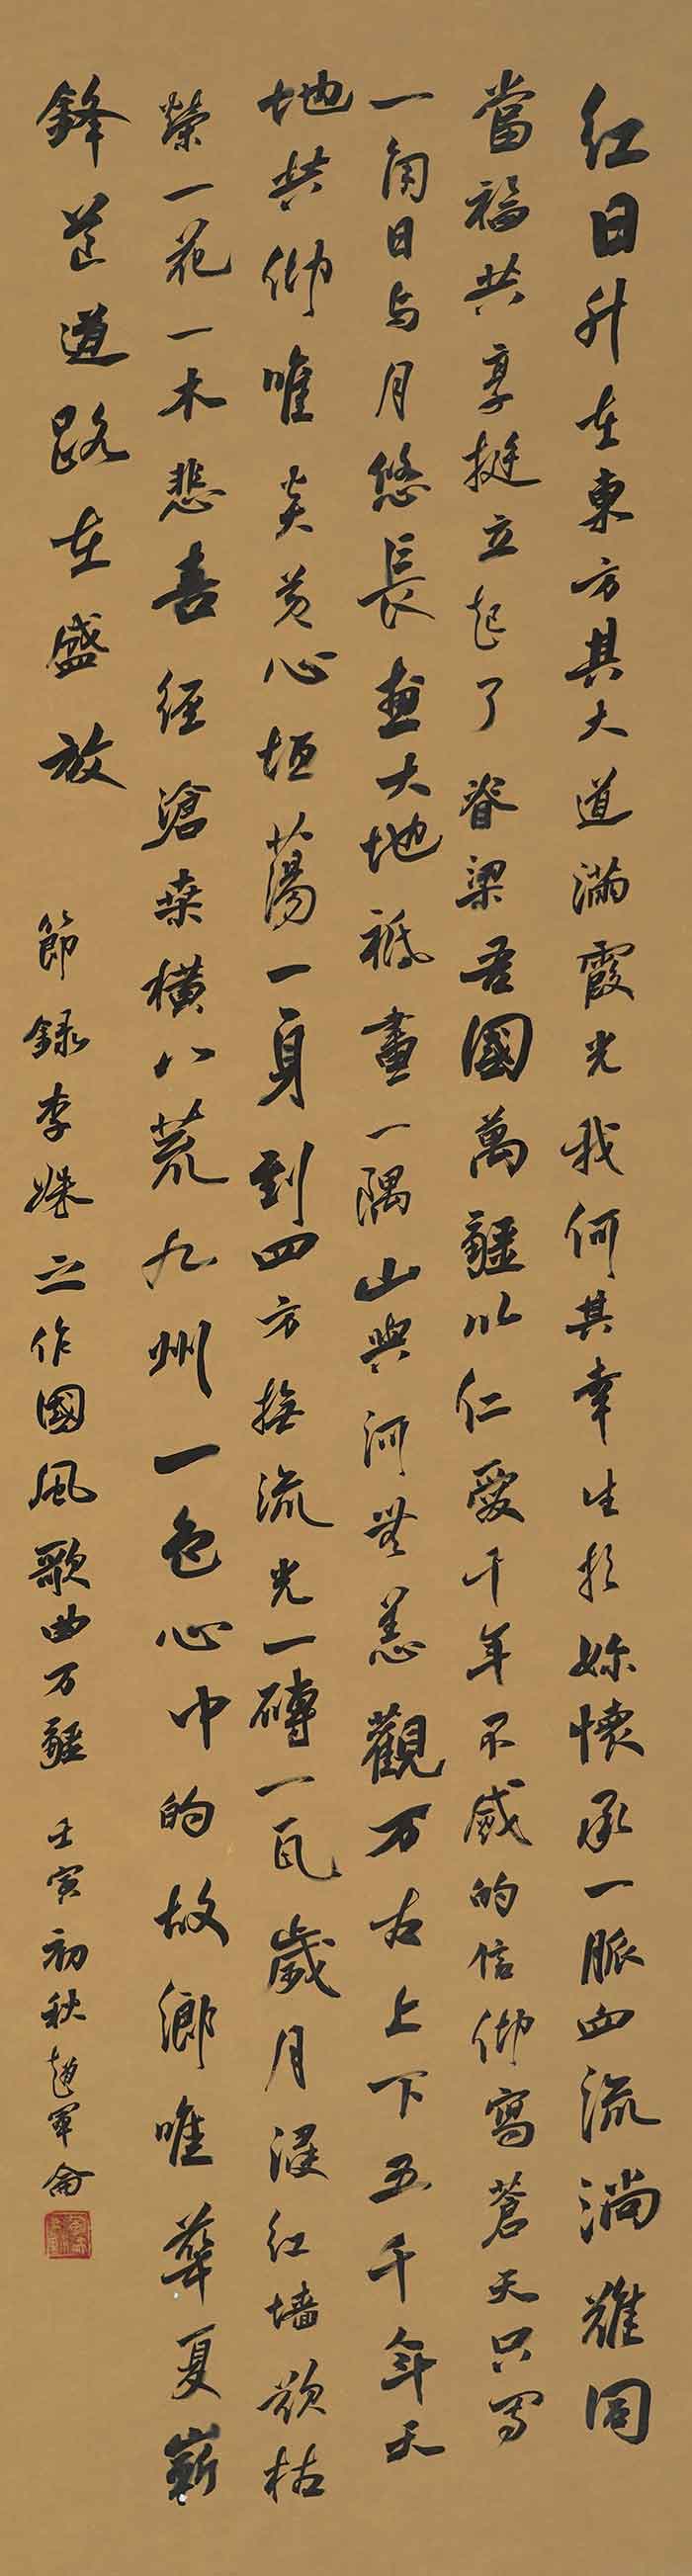 紅日升在東方其大道滿霞光我何其幸生於妳懷承一脈血流淌難同
當福共享挺立起了脊梁吾國萬疆以仁愛千年不烕的信仰寫蒼天只寫
一角日与月悠長畫大地祗畫一隅山與河無恙觀万古上下五千年天
地共仰唯炎黃心坦蕩一身到四方撫流光一磚一瓦歲月浸紅墙歎枯
榮一花一木悲喜經滄桑橫八荒九州一色心中的故鄉唯華夏嶄
鋒芒道路在盛放 節録李姝之作國風歌曲万疆 壬寅初秋趙軍侖